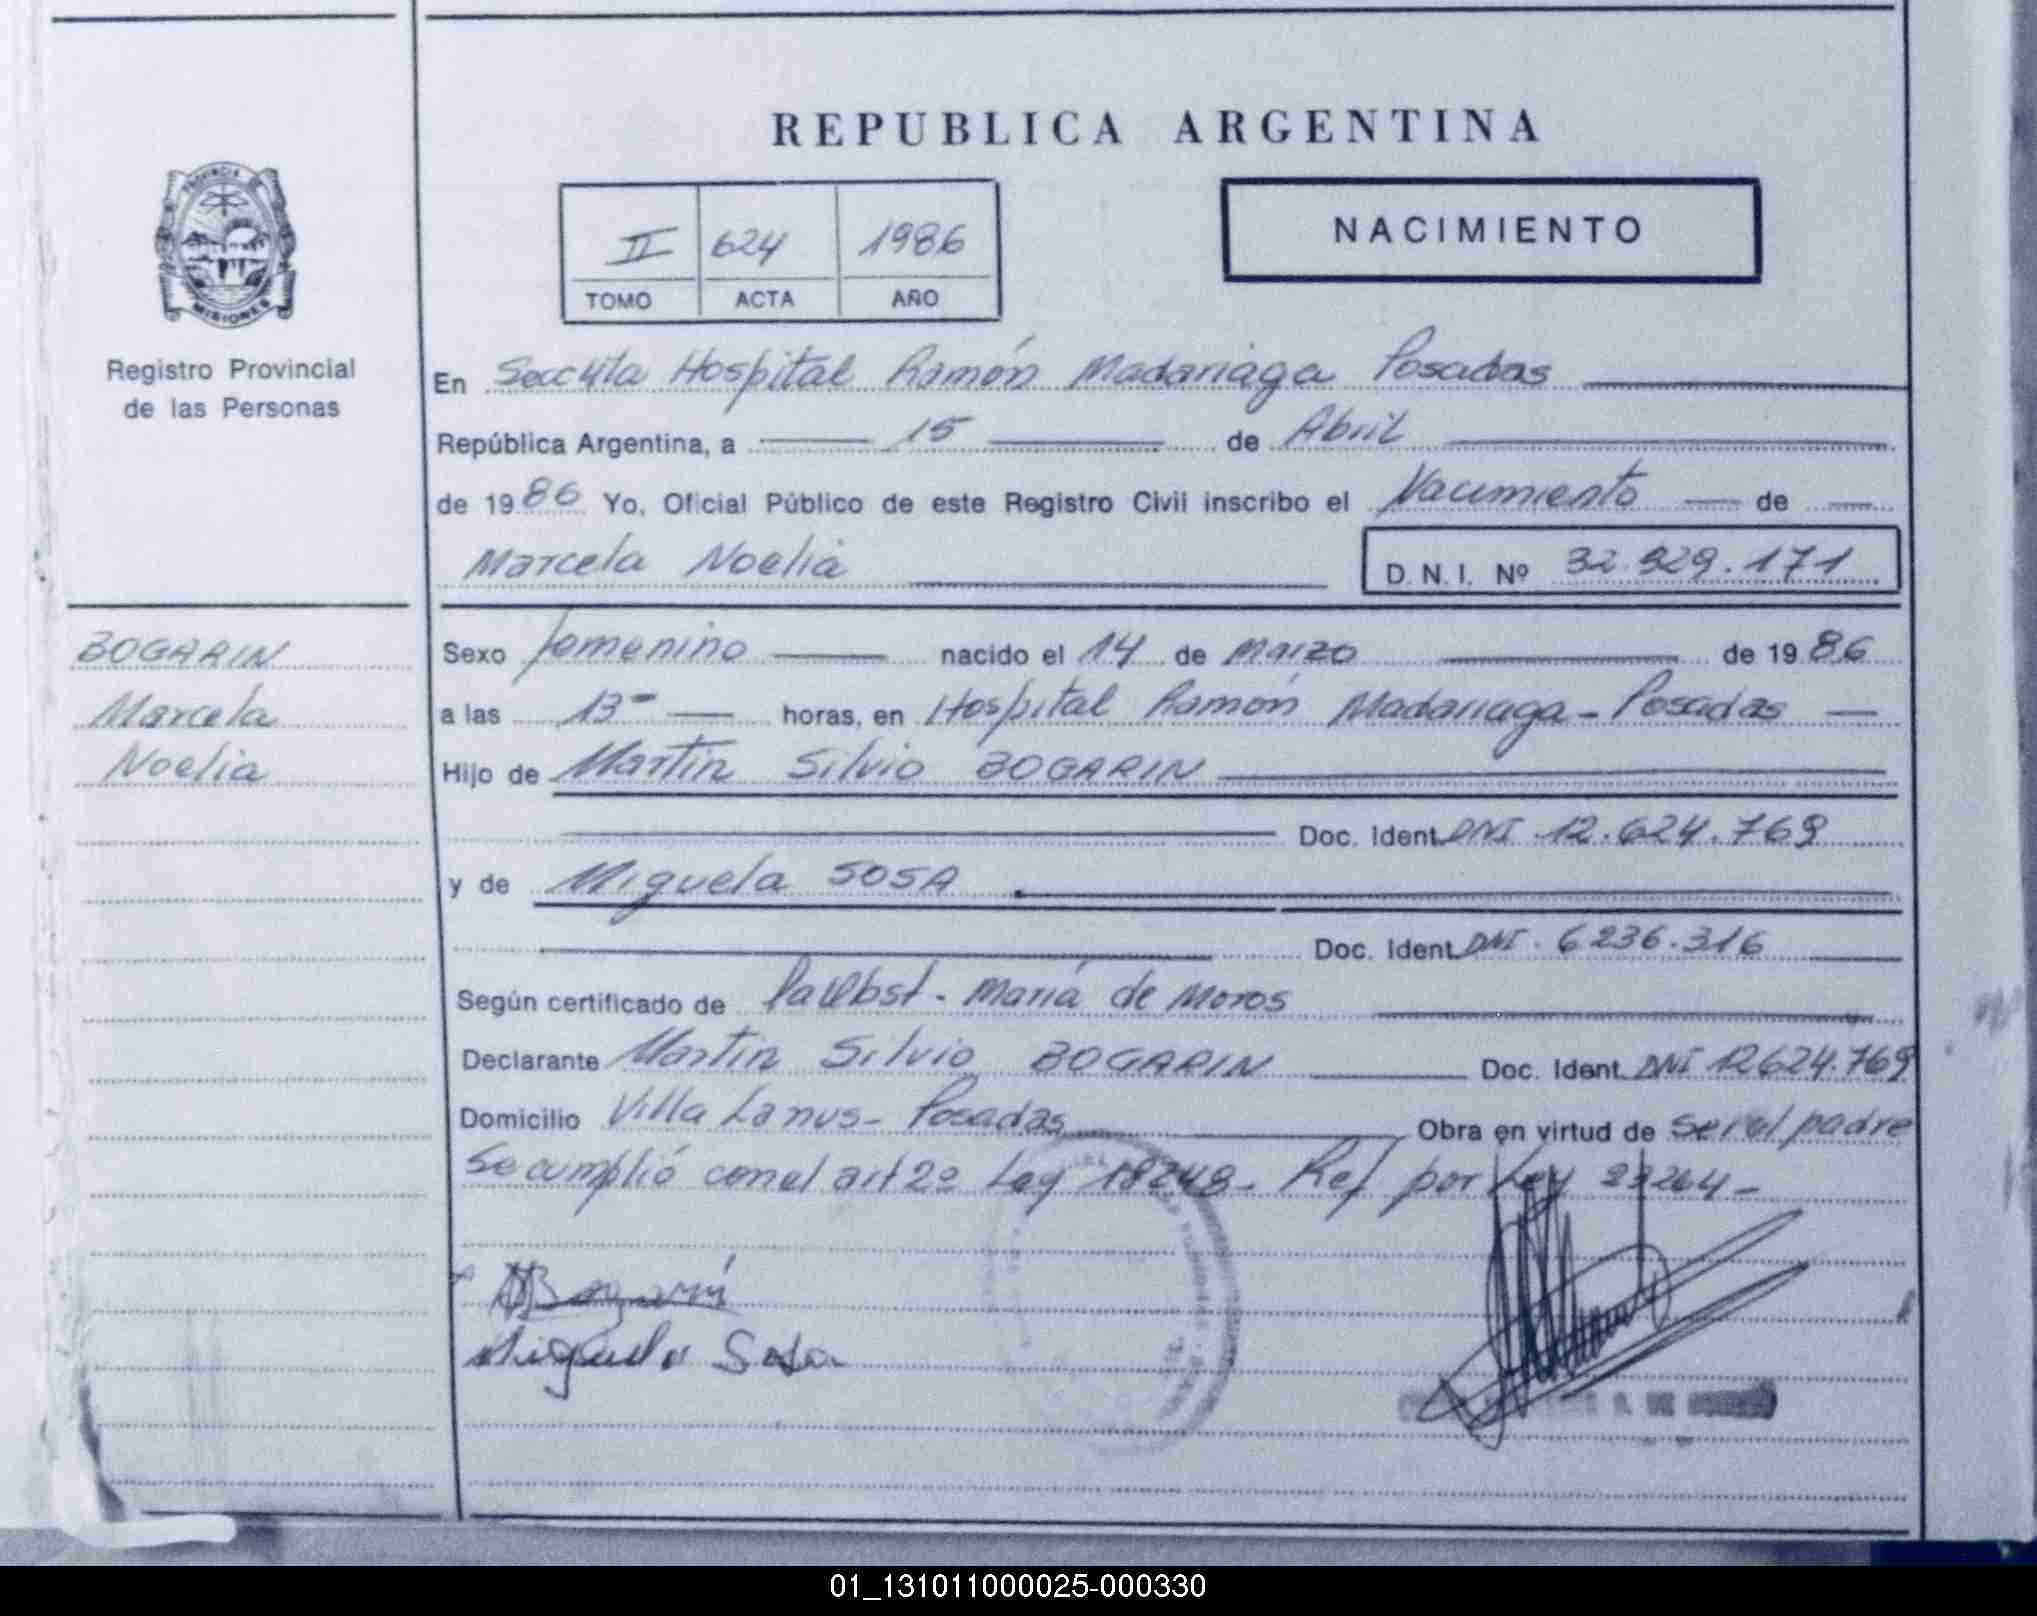 REPUBLICA ARGENTINA
PROVINCIA DE
MISIONES
Registro Provincial
de las Personas
II 624 1986
TOMO ACTA AÑO
NACIMIENTO
En Secc 4ta Hospital Ramón Madariaga Posadas
República Argentina, a 15 de Abril
de 1986 Yo, Oficial Público de este Registro Civil inscribo el Nacimiento de
Marcela Noelia D.N.I. Nº 32.929.171
BOGARIN
Marcela
Noelia
Sexo femenino nacido el 14 de Marzo de 1986
a las 13 horas, en Hospital Ramón Madariaga - Posadas
Hijo de Martin Silvio BOGARIN
Doc. Ident. DNI 12.624.769
y de Miguela SOSA
Doc. Ident. DNI. 6236.316
Según certificado de María de Moros
Declarante Martin Silvio BOGARIN Doc. Ident. DNI 12624.769
Domicilio Villa Lanus - Posadas Obra en virtud de ser el padre
Se cumplió con el art 2º Ley 18248 - Ref por Ley 23264 -
Bogarín
Miguela Sosa
01_131011000025-000330